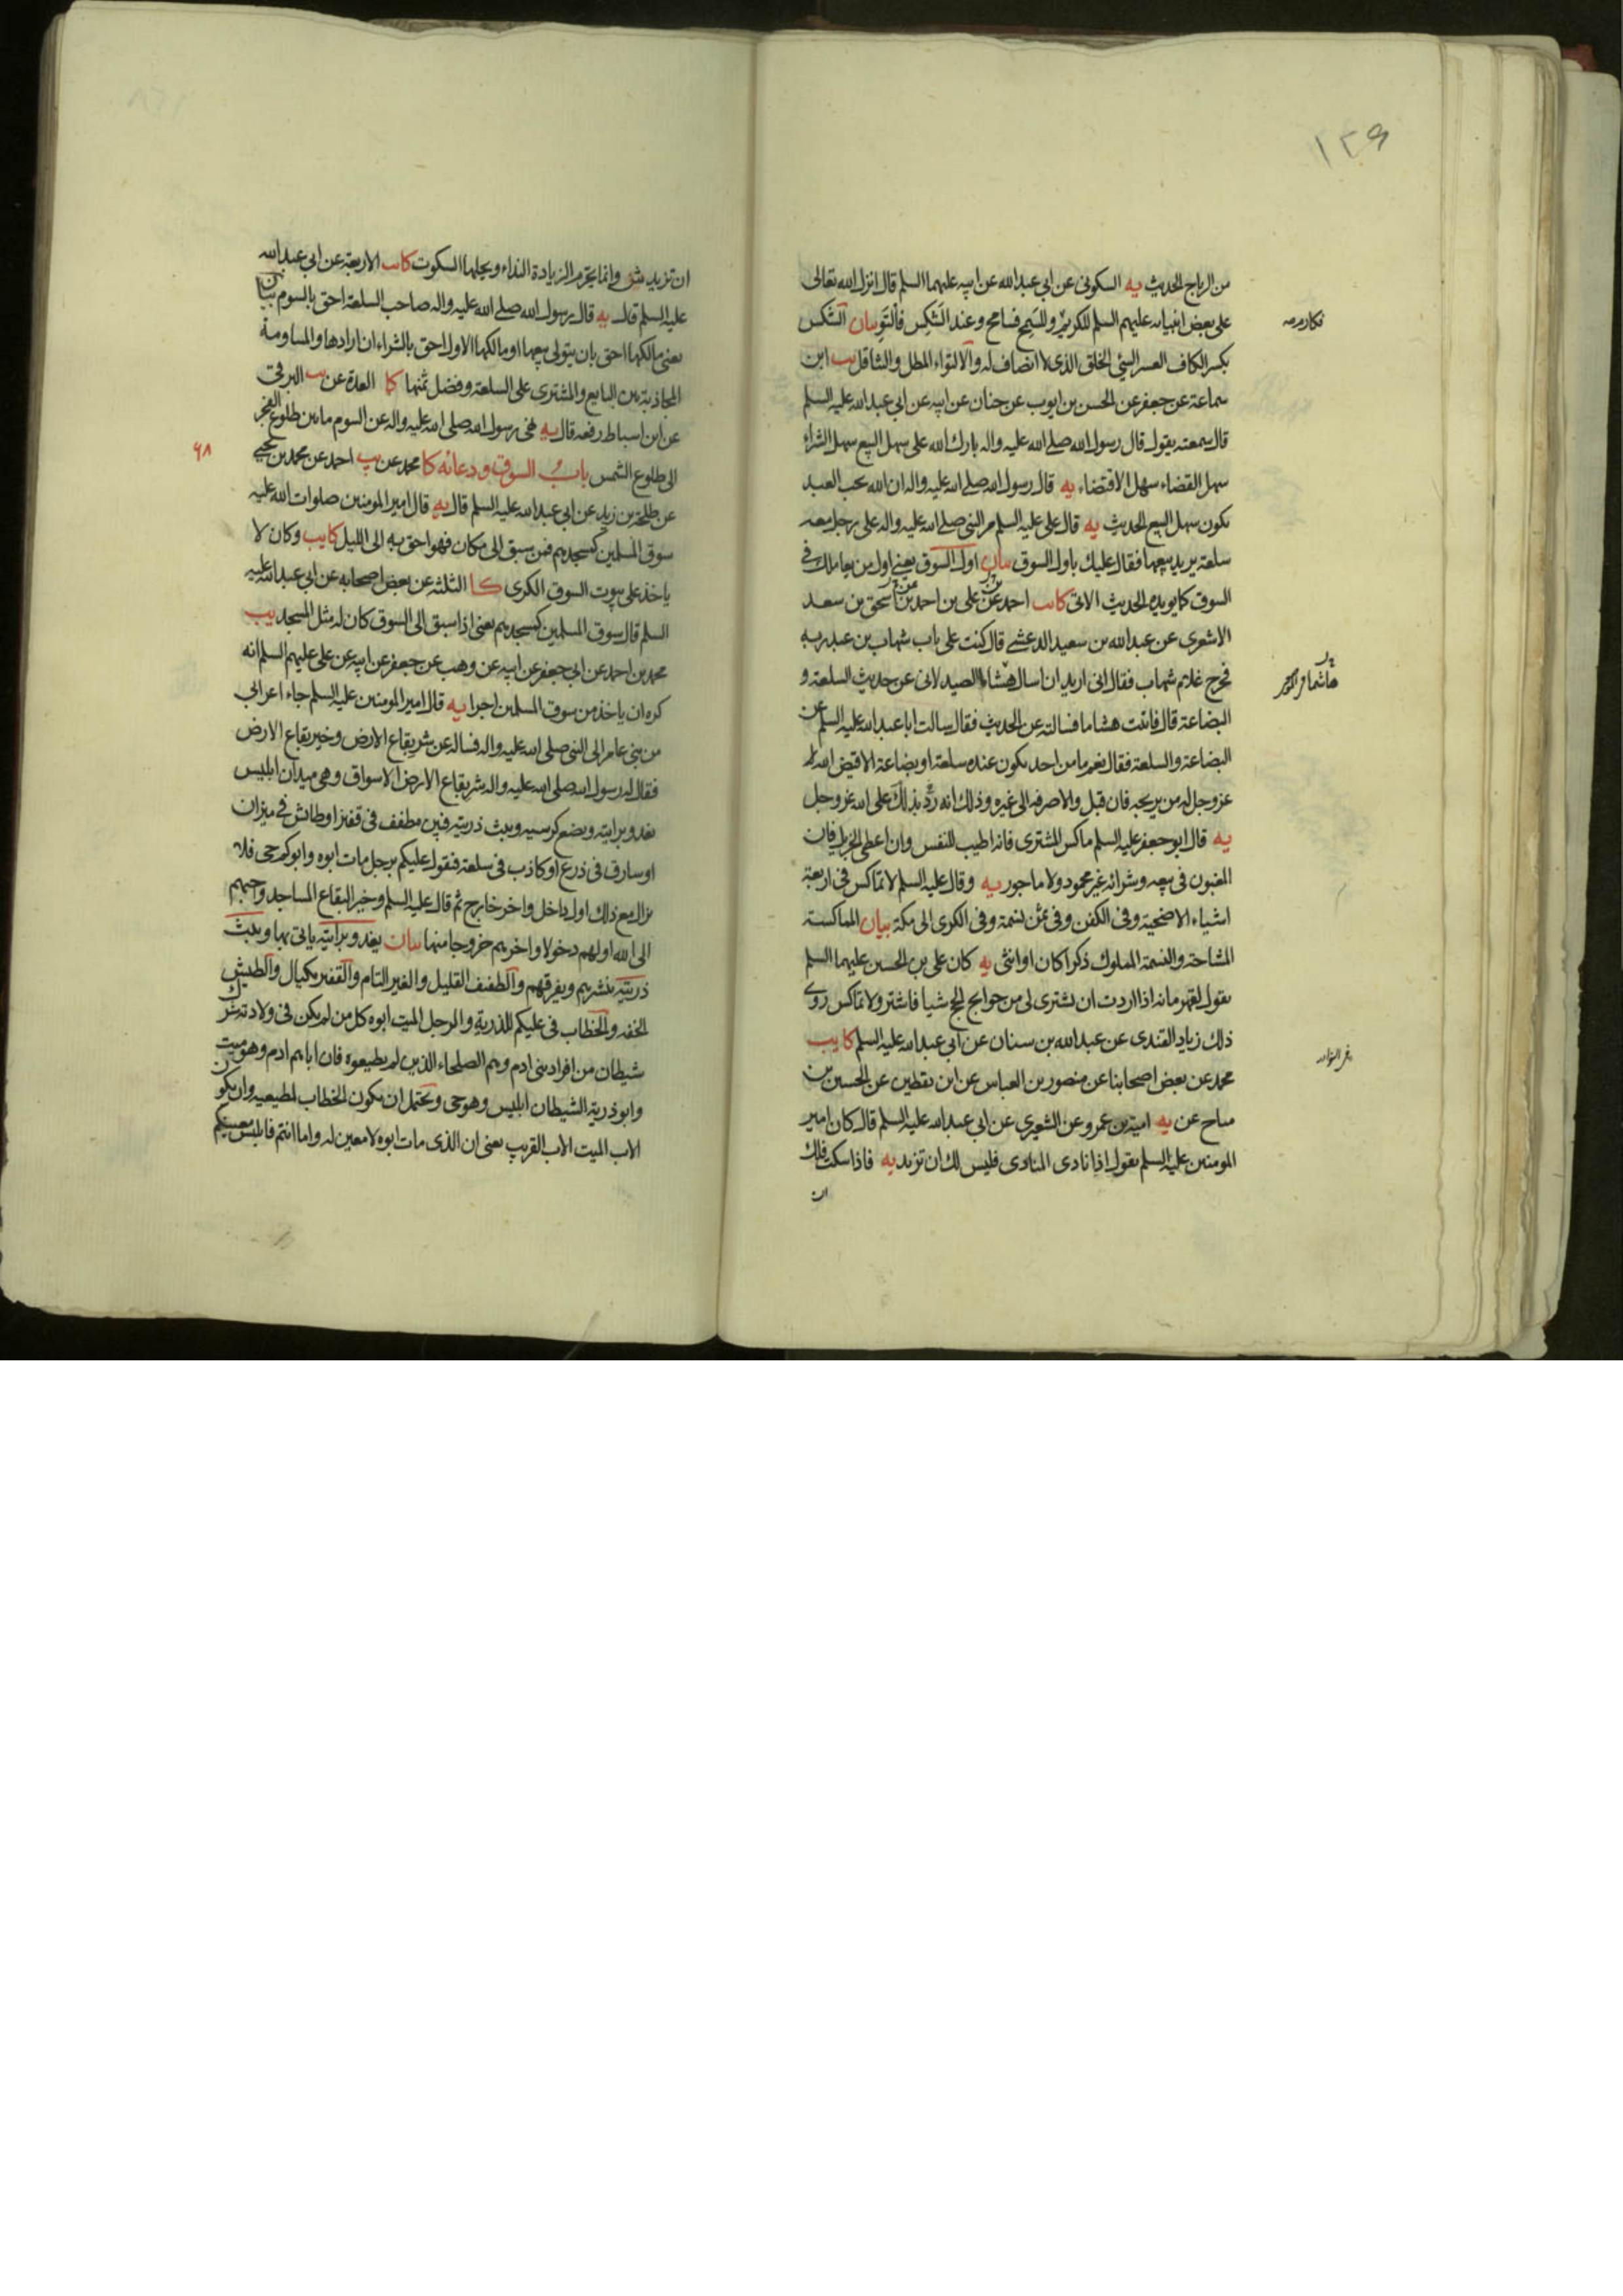 ١٢٩
من الرباح الحديث يه السكونى عن ابي عبد الله عن ابيه عليهما السلم قال انزل الله تعالى
على بعض انبيائه عليهم السلم للكريم فكارم وللسمح فسامح وعند الشكس فالتو بيان الشكس
فكارم صه
بكسر الكاف العسر السيئ الخلق الذى لا انصاف له والالتواء المطل والتثاقل يب ابن
سماعة عن جعفر عن الحسن بن ايوب عن حنان عن ابيه عن ابي عبد الله عليه السلم
قال سمعته يقول قال رسول الله صلى الله عليه واله بارك الله على سهل البيع سهل الشراء
سهل القضاء سهل الاقتضاء يه قال رسول الله صلى الله عليه واله ان الله يحب العبد
يكون سهل البيع الحديث يه قال على عليه السلم مر النبى صلى الله عليه واله على رجل معه
سلعة يريد بيعها فقال عليك باول السوق بيان اول السوق يعنى اول من يعاملك فى
السوق كما يويده الحديث الاتى كا يب احمد عن على بن احمد عن اسحق بن سعد
الاشعرى عن عبد الله بن سعيد الدغشى قال كنت على باب شهاب بن عبد ربه
فخرج غلام شهاب فقال انى اريد ان اسال هشام الصيدلانى عن حديث السلعة و
البضاعة قال فاتيت هشاما فسالته عن الحديث فقال سالت ابا عبد الله عليه السلم عن
البضاعة والسلعة فقال نعم ما من احد يكون عنده سلعة او بضاعة الا قيض الله
عز وجل له من يربحه فان قبل والا صرفه الى غيره وذلك انه رد بذلك على الله عز وجل
يه قال ابو جعفر عليه السلم ماكس المشترى فانه اطيب للنفس وان اعطى الجزيل فان
المغبون فى بيعه وشرائه غير محمود ولا ماجور يه وقال عليه السلم لا تماكس فى اربعة
اشياء الاضحية وفى الكفن وفى ثمن نسمة وفى الكرى الى مكة بيان المماكسة
المشاحة والنسمة المملوك ذكرا كان او انثى يه كان على بن الحسين عليهما السلم
يقول لقهرمانه اذا اردت ان تشترى لى من حوايج الحج شيا فاشتر ولا تماكس روى
ذلك زياد القندى عن عبد الله بن سنان عن ابي عبد الله عليه السلم كا يب
محمد عن بعض اصحابنا عن منصور بن العباس عن ابن يقطين عن الحسين بن
مياح عن يه امية بن عمرو عن الشعيرى عن ابى عبد الله عليه السلم قال كان امير
المومنين عليه السلم يقول اذا نادى المنادى فليس لك ان تزيد يه فاذا سكت فلك
ان
ان تزيد ش وانما يحرم الزيادة النداء ويحلها السكوت كا يب الاربعة عن ابى عبد الله
عليه السلم قال يه قال رسول الله صلى الله عليه واله صاحب السلعة احق بالسوم بيان
يعنى مالكها احق بان يتولى بيعها او مالكها الاول احق بالشراء ان ارادها والمساومة
المجاذبة بين البايع والمشترى على السلعة وفضل ثمنها كا العدة عن يب البرقى
عن ابن اسباط رفعه قال يه نهى رسول الله صلى الله عليه واله عن السوم ما بين طلوع الفجر
الى طلوع الشمس باب السوق ودعائه كا محمد عن يب احمد عن محمد بن يحيى
٦٨
عن طلحة بن زيد عن ابى عبد الله عليه السلم قال يه قال امير المومنين صلوات الله عليه
سوق المسلمين كمسجدهم فمن سبق الى مكان فهو احق به الى الليل كا يب وكان لا
ياخذ على بيوت السوق الكرى كا الثلثة عن بعض اصحابه عن ابى عبد الله عليه
السلم قال سوق المسلمين كمسجدهم يعنى اذا سبق الى السوق كان له مثل المسجد يب
محمد بن احمد عن ابى جعفر عن ابيه عن وهب عن جعفر عن ابيه عن على عليهم السلم انه
كره ان ياخذ من سوق المسلمين اجرا يه قال امير المومنين عليه السلم جاء اعرابى
من بنى عامر الى النبى صلى الله عليه واله فساله عن شر بقاع الارض وخير بقاع الارض
فقال له رسول الله صلى الله عليه واله شر بقاع الارض الاسواق وهى ميدان ابليس
يغدو برايته ويضع كرسيه ويبث ذريته فبين مطفف فى قفيز او طائش فى ميزان
او سارق فى ذرع او كاذب فى سلعة فيقول عليكم برجل مات ابوه وابوكم حى فلا
يزال مع ذلك اول داخل واخر خارج ثم قال عليه السلم وخير البقاع المساجد واحبهم
الى الله اولهم دخولا واخرهم خروجا منها بيان يغدو برايته ياتى بها ويبث
ذريته ينشرهم ويفرقهم والطفيف القليل والغير التام والقفيز مكيال والطيش
الخفه والخطاب فى عليكم للذرية والرجل الميت ابوه كل من لم يكن فى ولادته شرك
شيطان من افراد بنى ادم وهم الصلحاء الذين لم يطيعوه فان اباهم ادم وهو ميت
وابو ذرية الشيطان ابليس وهو حى ويحتمل ان يكون الخطاب لمطيعيه وان يكون
الاب الميت الاب القريب يعنى ان الذى مات ابوه لا معين له واما انتم فابليس معينكم